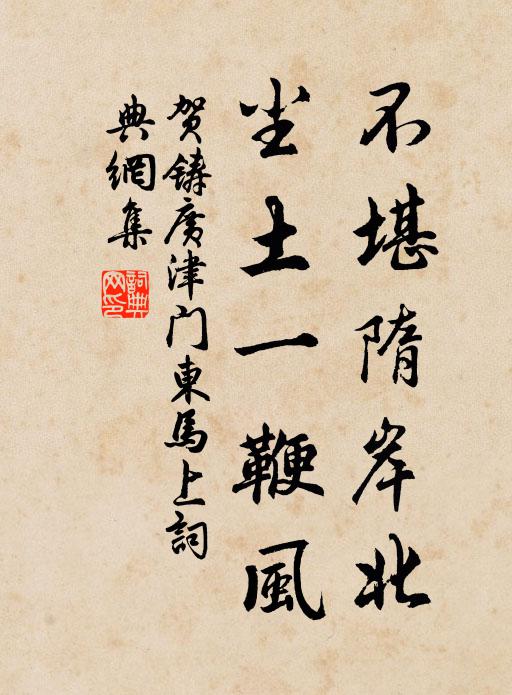 不堪隋岸北
尘土一鞭風
贺鑄廣津门東馬上詞
典網集
詞典
网印